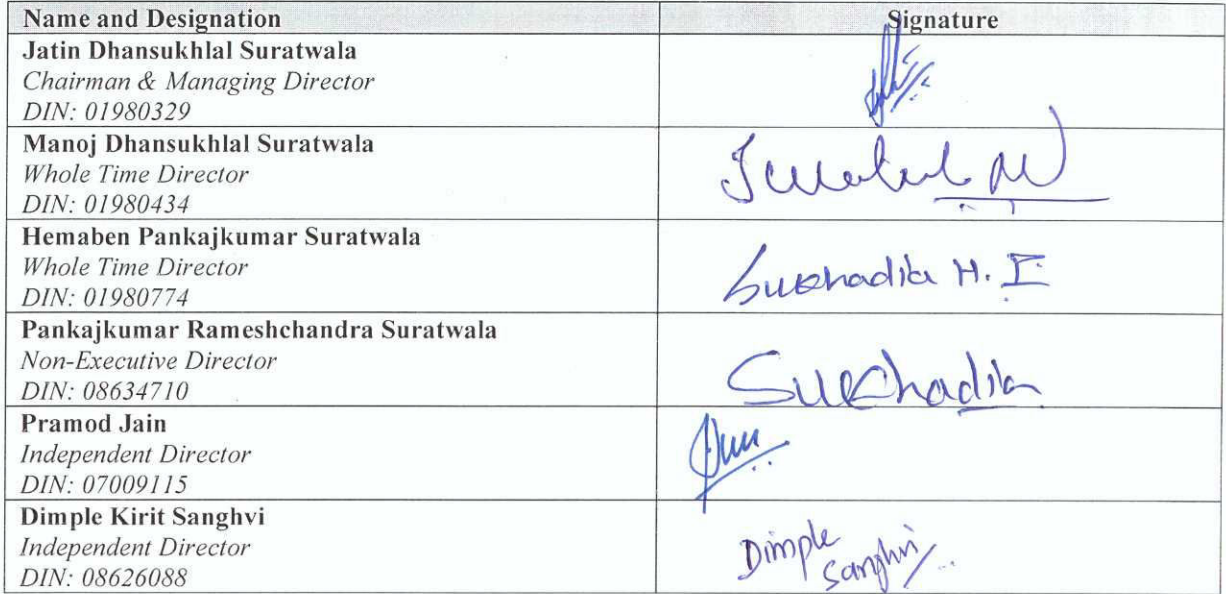 Name and Designation Signature
Jatin Dhansukhlal Suratwala
Chairman & Managing Director
DIN: 01980329
Manoj Dhansukhlal Suratwala
Whole Time Director
DIN: 01980434
Hemaben Pankajkumar Suratwala
Whole Time Director
DIN: 01980774
Sukhadia H. I
Pankajkumar Rameshchandra Suratwala
Non-Executive Director
DIN: 08634710
Sukhadia
Pramod Jain
Independent Director
DIN: 07009115
Dimple Kirit Sanghvi
Independent Director
DIN: 08626088
Dimple
Sanghvi